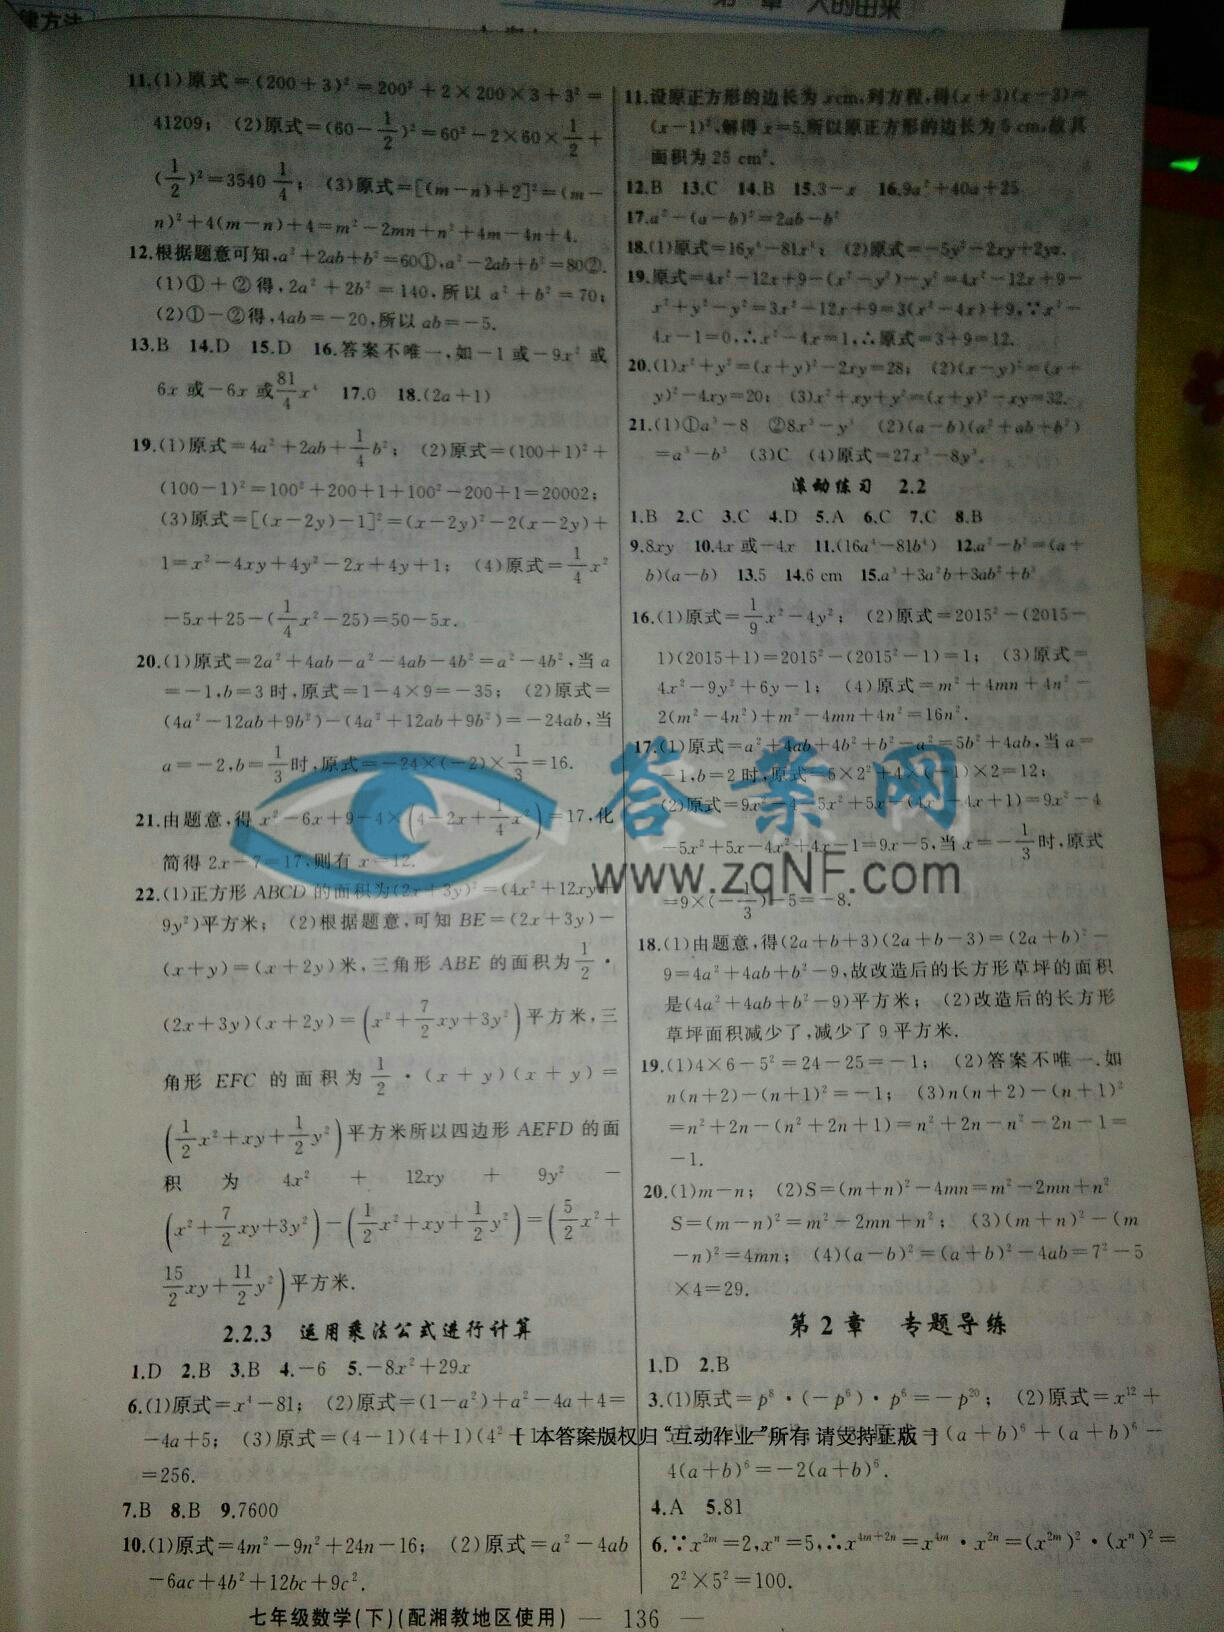 11.(1)原式=(200+3)²=200²+2×200×3+3²=
41209; (2)原式=(60-1/2)²=60²-2×60×1/2+
(1/2)²=3540 1/4; (3)原式=[(m-n)+2]²=(m-
n)²+4(m-n)+4=m²-2mn+n²+4m-4n+4.
12.根据题意可知,a²+2ab+b²=60①,a²-2ab+b²=80②.
(1)①+②得,2a²+2b²=140,所以 a²+b²=70;
(2)①-②得,4ab=-20,所以 ab=-5.
13.B 14.D 15.D 16.答案不唯一,如-1 或-9x² 或
6x 或-6x 或81/4x⁴ 17.0 18.(2a+1)
19.(1)原式=4a²+2ab+1/4b²; (2)原式=(100+1)²+
(100-1)²=100²+200+1+100²-200+1=20002;
(3)原式=[(x-2y)-1]²=(x-2y)²-2(x-2y)+
1=x²-4xy+4y²-2x+4y+1; (4)原式=1/4x²
-5x+25-(1/4x²-25)=50-5x.
20.(1)原式=2a²+4ab-a²-4ab-4b²=a²-4b²,当 a
=-1,b=3 时,原式=1-4×9=-35; (2)原式=
(4a²-12ab+9b²)-(4a²+12ab+9b²)=-24ab,当
a=-2,b=1/3时,原式=-24×(-2)×1/3=16.
21.由题意,得 x²-6x+9-4×(4-2x+1/4x²)=17,化
简得 2x-7=17,则有 x=12.
22.(1)正方形 ABCD 的面积为(2x+3y)²=(4x²+12xy+
9y²)平方米; (2)根据题意,可知 BE=(2x+3y)-
(x+y)=(x+2y)米,三角形 ABE 的面积为1/2·
(2x+3y)(x+2y)=(x²+7/2xy+3y²)平方米,三
角形 EFC 的面积为1/2·(x+y)(x+y)=
(1/2x²+xy+1/2y²)平方米所以四边形 AEFD 的面
积 为 4x² + 12xy + 9y² -
(x²+7/2xy+3y²)-(1/2x²+xy+1/2y²)=(5/2x²+
15/2xy+11/2y²)平方米.
2.2.3 运用乘法公式进行计算
1.D 2.B 3.B 4.-6 5.-8x²+29x
6.(1)原式=x⁴-81; (2)原式=(1-a²)+a²-4a+4=
-4a+5; (3)原式=(4-1)(4+1)(4²
=256.
7.B 8.B 9.7600
10.(1)原式=4m²-9n²+24n-16; (2)原式=a²-4ab
-6ac+4b²+12bc+9c².
11.设原正方形的边长为 xcm,列方程,得(x+3)(x-3)=
(x-1)²,解得 x=5.所以原正方形的边长为 5 cm,故其
面积为 25 cm².
12.B 13.C 14.B 15.3-x 16.9a²+40a+25
17.a²-(a-b)²=2ab-b²
18.(1)原式=16y⁴-81x⁴; (2)原式=-5y²-2xy+2yz.
19.原式=4x²-12x+9-(x²-y²)-y²=4x²-12x+9-
x²+y²-y²=3x²-12x+9=3(x²-4x)+9,∵x²-
4x-1=0,∴x²-4x=1,∴原式=3+9=12.
20.(1)x²+y²=(x+y)²-2xy=28; (2)(x-y)²=(x+
y)²-4xy=20; (3)x²+xy+y²=(x+y)²-xy=32.
21.(1)①a³-8 ②8x³-y³ (2)(a-b)(a²+ab+b²)
=a³-b³ (3)C (4)原式=27x³-8y³.
滚动练习 2.2
1.B 2.C 3.C 4.D 5.A 6.C 7.C 8.B
9.8xy 10.4x 或-4x 11.(16a⁴-81b⁴) 12.a²-b²=(a+
b)(a-b) 13.5 14.6 cm 15.a³+3a²b+3ab²+b³
16.(1)原式=1/9x²-4y²; (2)原式=2015²-(2015-
1)(2015+1)=2015²-(2015²-1)=1; (3)原式=
4x²-9y²+6y-1; (4)原式=m²+4mn+4n²-
2(m²-4n²)+m²-4mn+4n²=16n².
17.(1)原式=a²+4ab+4b²+b²-a²=5b²+4ab,当 a=
-1,b=2 时,原式=5×2²+4×(-1)×2=12;
(2)原式=9x²-4-5x²+5x-(4x²-4x+1)=9x²-4
-5x²+5x-4x²+4x-1=9x-5,当 x=-1/3时,原式
=9×(-1/3)-5=-8.
18.(1)由题意,得(2a+b+3)(2a+b-3)=(2a+b)²-
9=4a²+4ab+b²-9,故改造后的长方形草坪的面积
是(4a²+4ab+b²-9)平方米; (2)改造后的长方形
草坪面积减少了,减少了 9 平方米.
19.(1)4×6-5²=24-25=-1; (2)答案不唯一.如
n(n+2)-(n+1)²=-1; (3)n(n+2)-(n+1)²
=n²+2n-(n²+2n+1)=n²+2n-n²-2n-1=
-1.
20.(1)m-n; (2)S=(m+n)²-4mn=m²-2mn+n²
S=(m-n)²=m²-2mn+n²; (3)(m+n)²-(m
-n)²=4mn; (4)(a-b)²=(a+b)²-4ab=7²-5
×4=29.
第2章 专题导练
1.D 2.B
3.(1)原式=p⁸·(-p⁶)·p⁶=-p²⁰; (2)原式=x¹²+
(a+b)⁶+(a+b)⁶-
4(a+b)⁶=-2(a+b)⁶.
4.A 5.81
6.∵x²ᵐ=2,xⁿ=5,∴x⁴ᵐ⁺²ⁿ=x⁴ᵐ·x²ⁿ=(x²ᵐ)²·(xⁿ)²=
2²×5²=100.
七年级数学(下)(配湘教地区使用) — 136 —
答案网
www.zqNF.com
本答案版权归“互动作业”所有 请支持正版